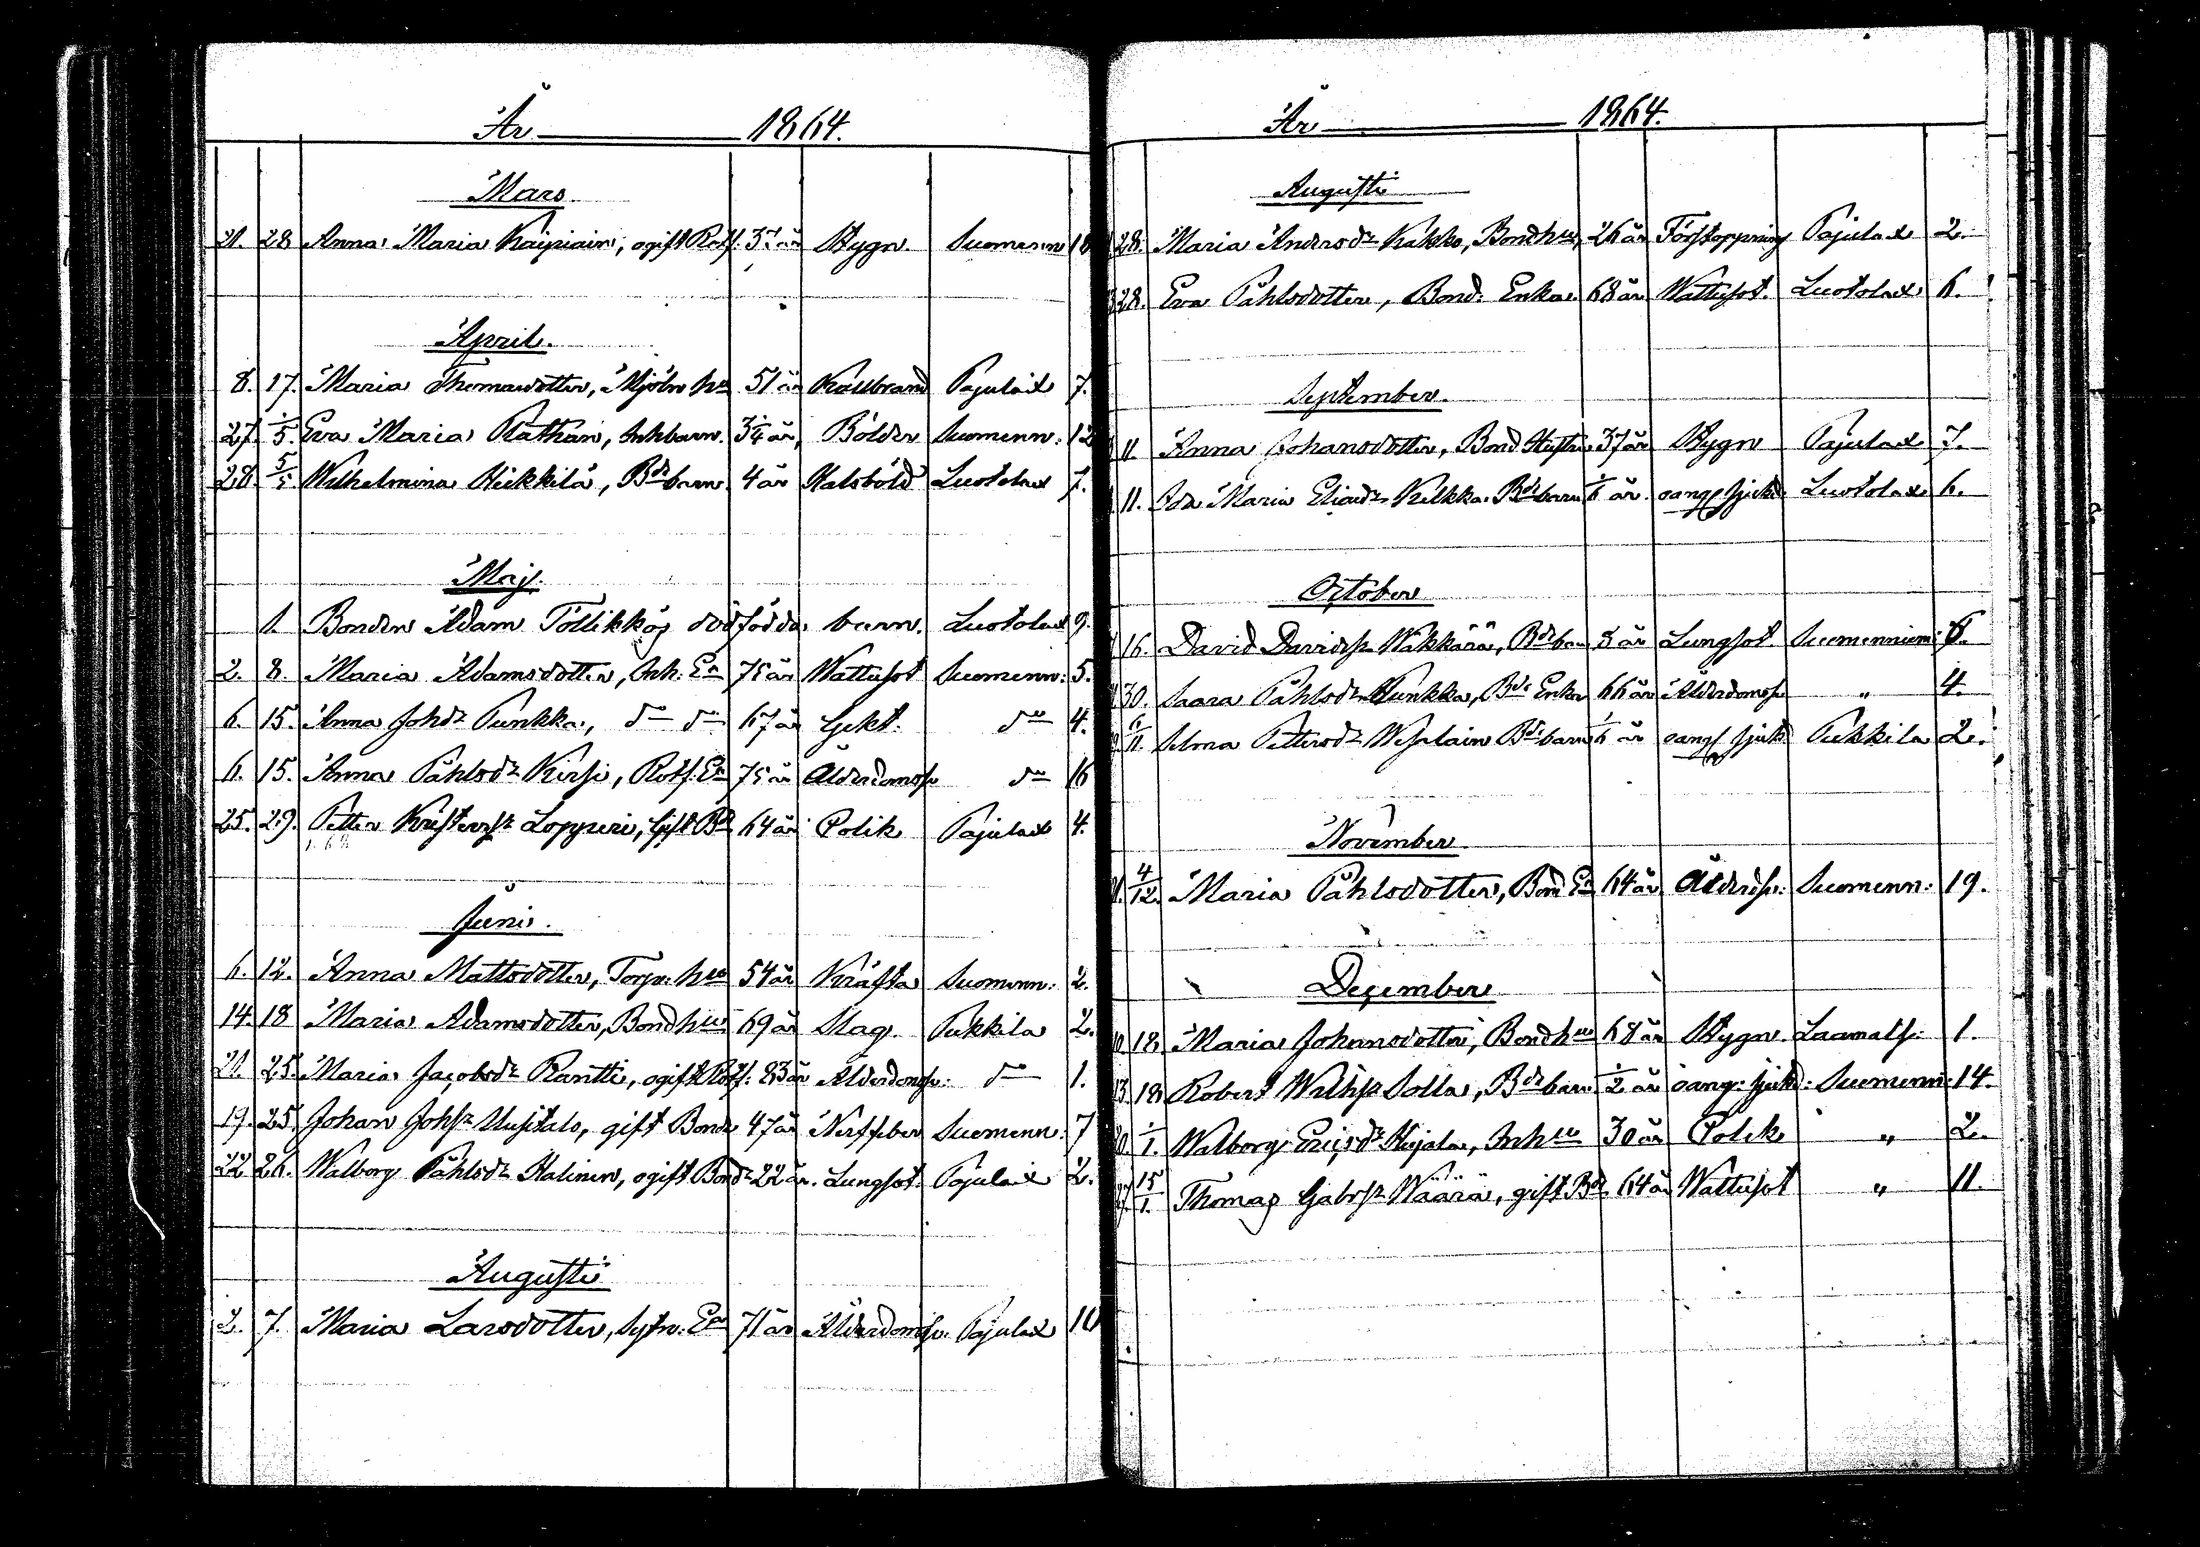 År 1864.
Mars
21. 28 Anna Maria Kaipiain, ogift Rotf. 37 år Stygn Suomenn 16
April.
8. 17. Maria Thomasdotter, Mjöln. hu 51 år Kallbrand Pajulax 7.
27. 1/5. Eva Maria Rathan, Inhbarn. 3/4 år, Bölder Suomenn: 12
28. 5/5 Wilhelmina Heikkilä, Bdebarn 4 år Halsböld Luotolax 7.
Maj.
1. Bonden Adam Töllikkös dödfödda barn. Luotolax 9.
2. 8. Maria Adamsdotter, Inh. Ea 75 år Wattusot Suomenn: 5.
6. 15. Anna Johdr Punkka, do do 67 år Gikt. do 4.
6. 15. Anna Påhlsdr Kirsi, Rotf. Ea 75 år Ålderdomsv do 16
25. 29. Petter Kristersr Lopperi, gift Bd 64 år Colik Pajulax 4.
Juni.
6. 12. Anna Mattsdotter, Torp. hu 54 år Kräfta Suomenn: 2.
14. 18 Maria Adamsdotter, Bondhu 69 år Slag. Pukkila 2.
21. 25. Maria Jacobsdr Rantti, ogift Rotf. 83 år Ålderdomsv: do 1.
19. 25 Johan Johsr Uusitalo, gift Bonde 47 år Nerffeber Suomenn: 7
22 26. Walborg Påhlsdr Halinen, ogift Bondr 22 år. Lungsot. Pajulax 2.
Augusti
2. 7. Maria Larsdotter, Sytn. Ea 71 år Ålderdomsv. Pajulax 10
År 1864.
Augusti
28. Maria Andersdr Kakko, Bondhu 26 år Förstoppning Pajulax 2.
28. Eva Påhlsdotter, Bond. Enka. 68 år Wattusot. Luotolax 6.
September.
11 Anna Johansdotter, Bond Hustru 37 år Stygn Pajulax 7.
11. Ida Maria Eliaedr Kilkka. Bdebarn 1/6 år. oang. sjukd Luotolax 6.
October
16. David Davidsr Wäkkärä, Bdebarn 3 år Lungsot Suomenniem: 5.
30. Saara Påhlsdr Hunkka, Bde Enka 66 år Ålderdomsv " 4.
6/11. Selma Pettersdr Wesalain Bdebarn 1/6 år oang. sjukd Pukkila 2.
November
4/12. Maria Påhlsdotter, Bond Ea 64 år Ålderdsv. Suomenn: 19.
December
18. Maria Johansdotter, Bondhu 68 år Stygn. Laamalh. 1.
13 18 Robert Wilhsr Solla, Bdebarn 1/2 år oang. sjukd: Suomenn: 14.
20. 1/1. Walborg Ericsdr Kujala, Inhhu 30 år Colik " 2.
27. 15/1. Thomas Gabrsr Wäärä, gift Bd 64 år Wattusot " 11.